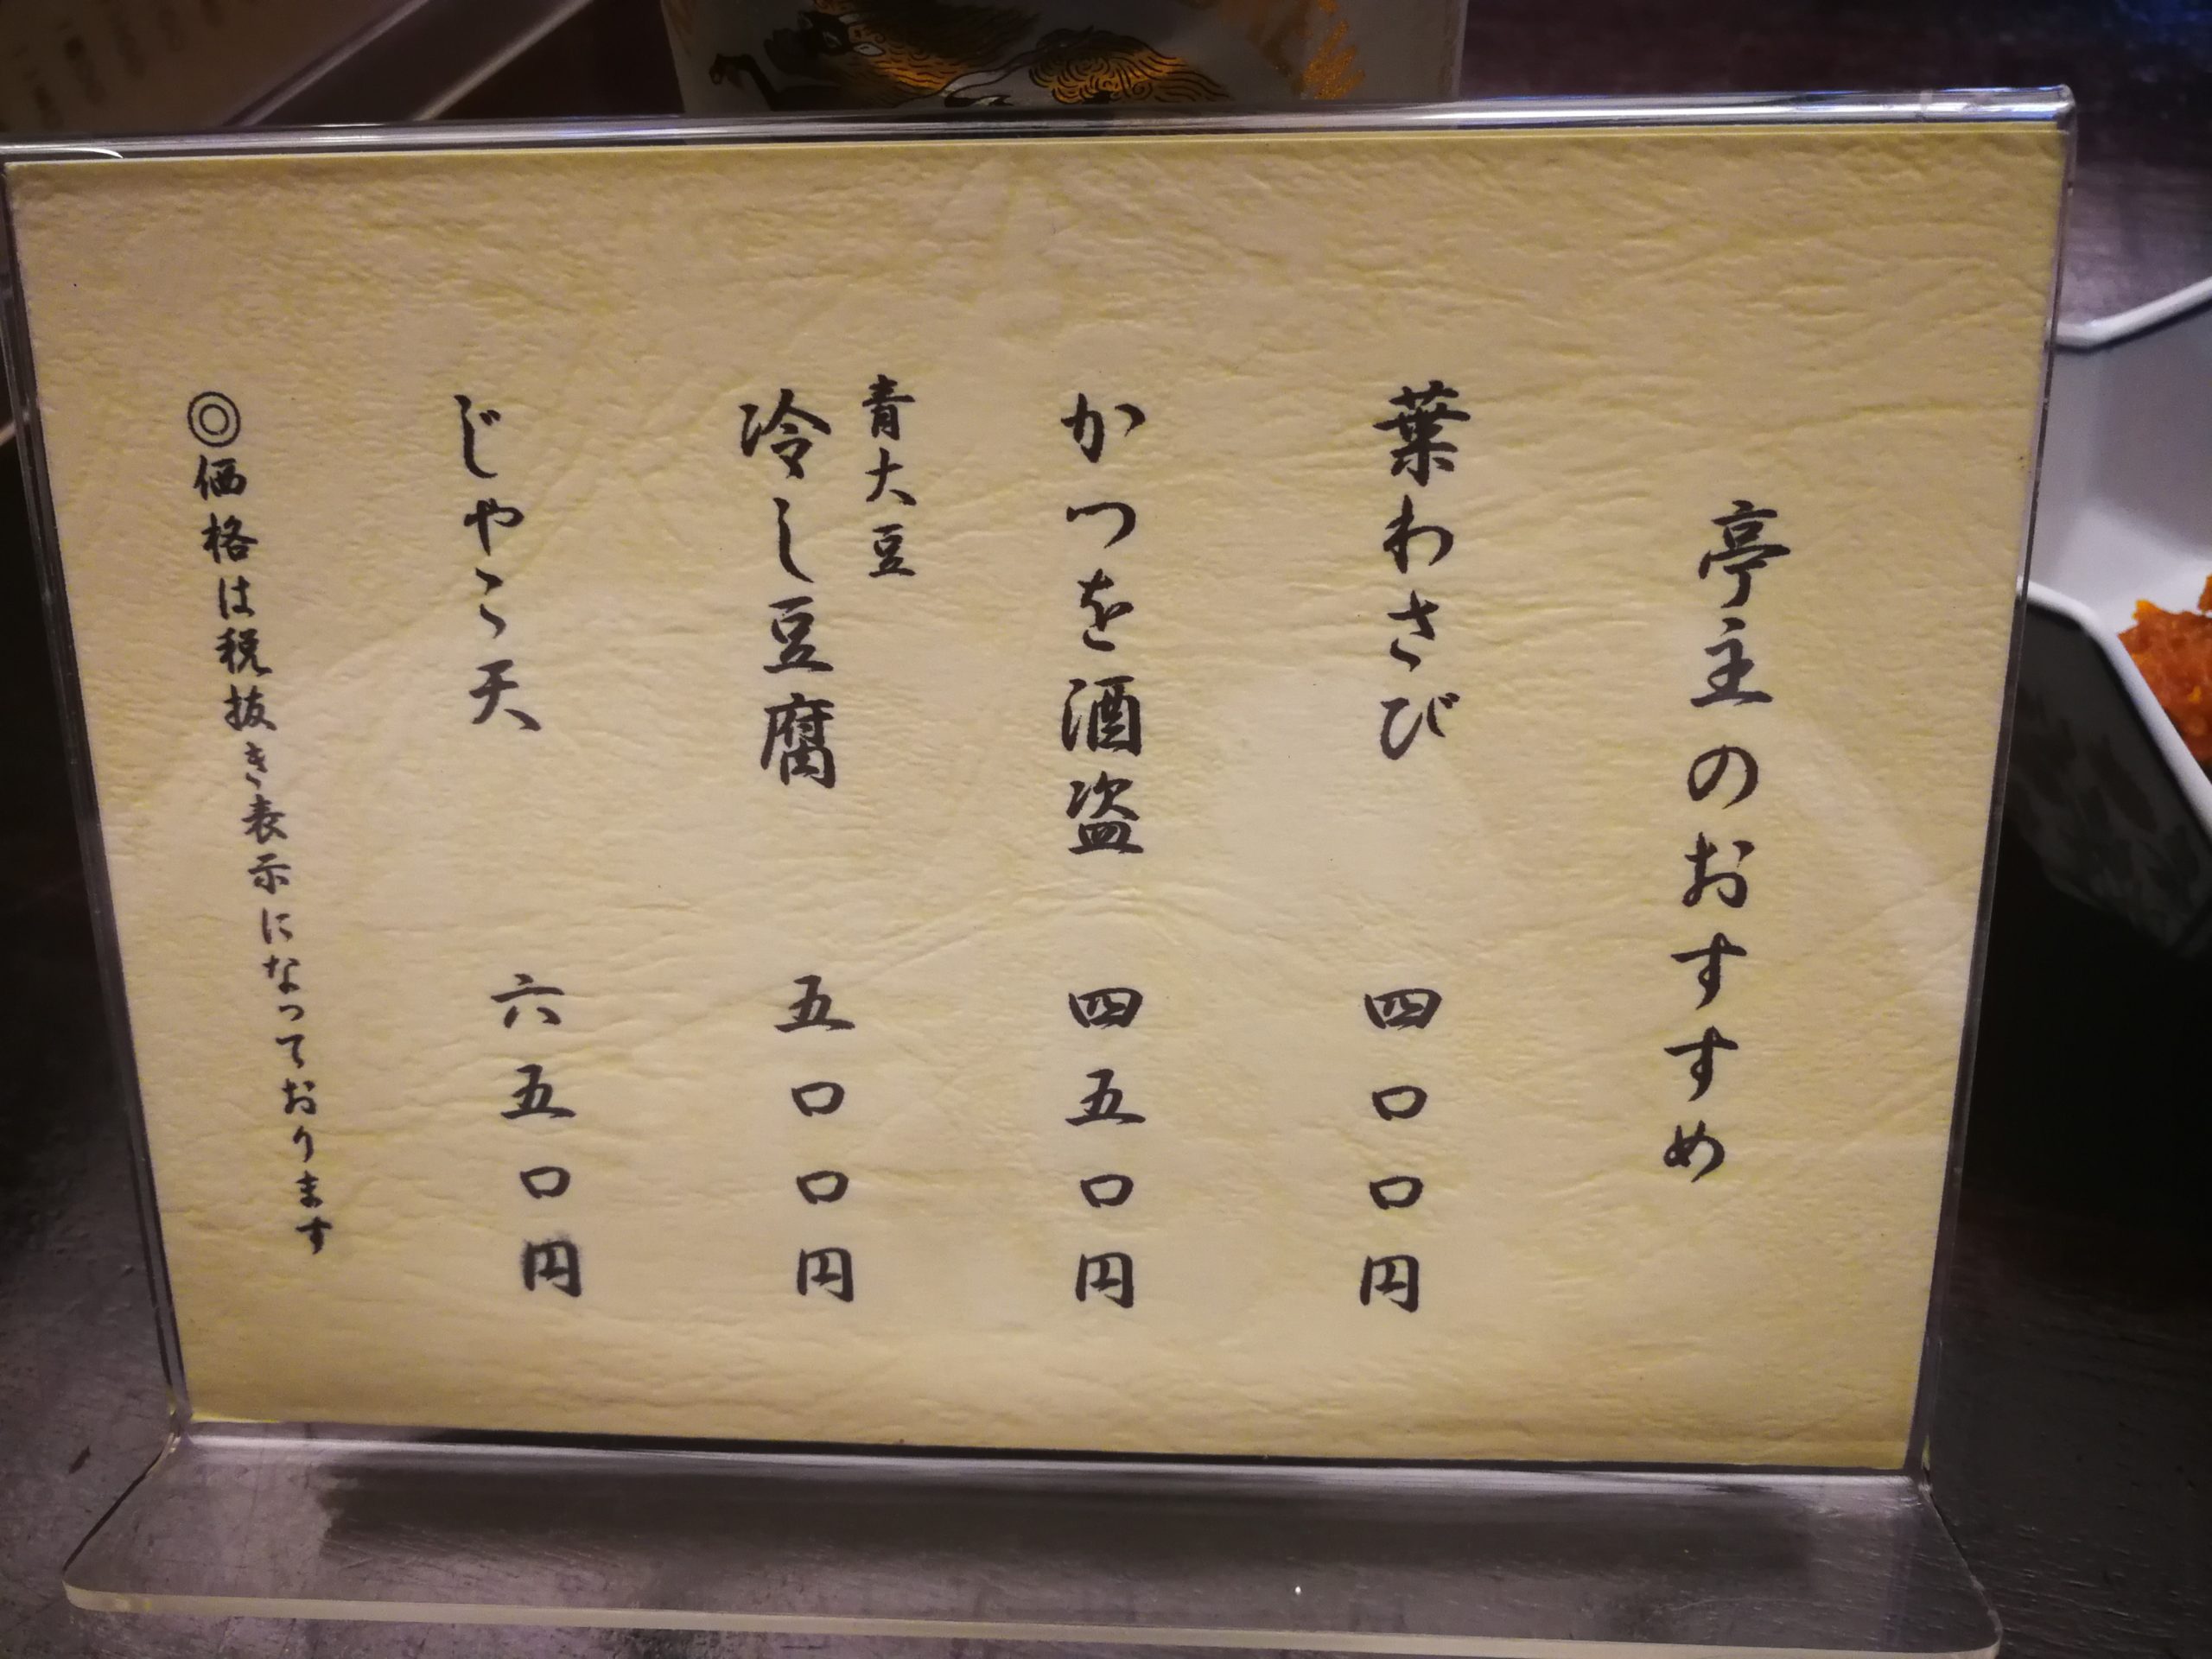 亭主のおすすめ
葉わさび 四〇〇円
かつを酒盗 四五〇円
青大豆
冷し豆腐 五〇〇円
じゃこ天 六五〇円
◎価格は税抜き表示になっております